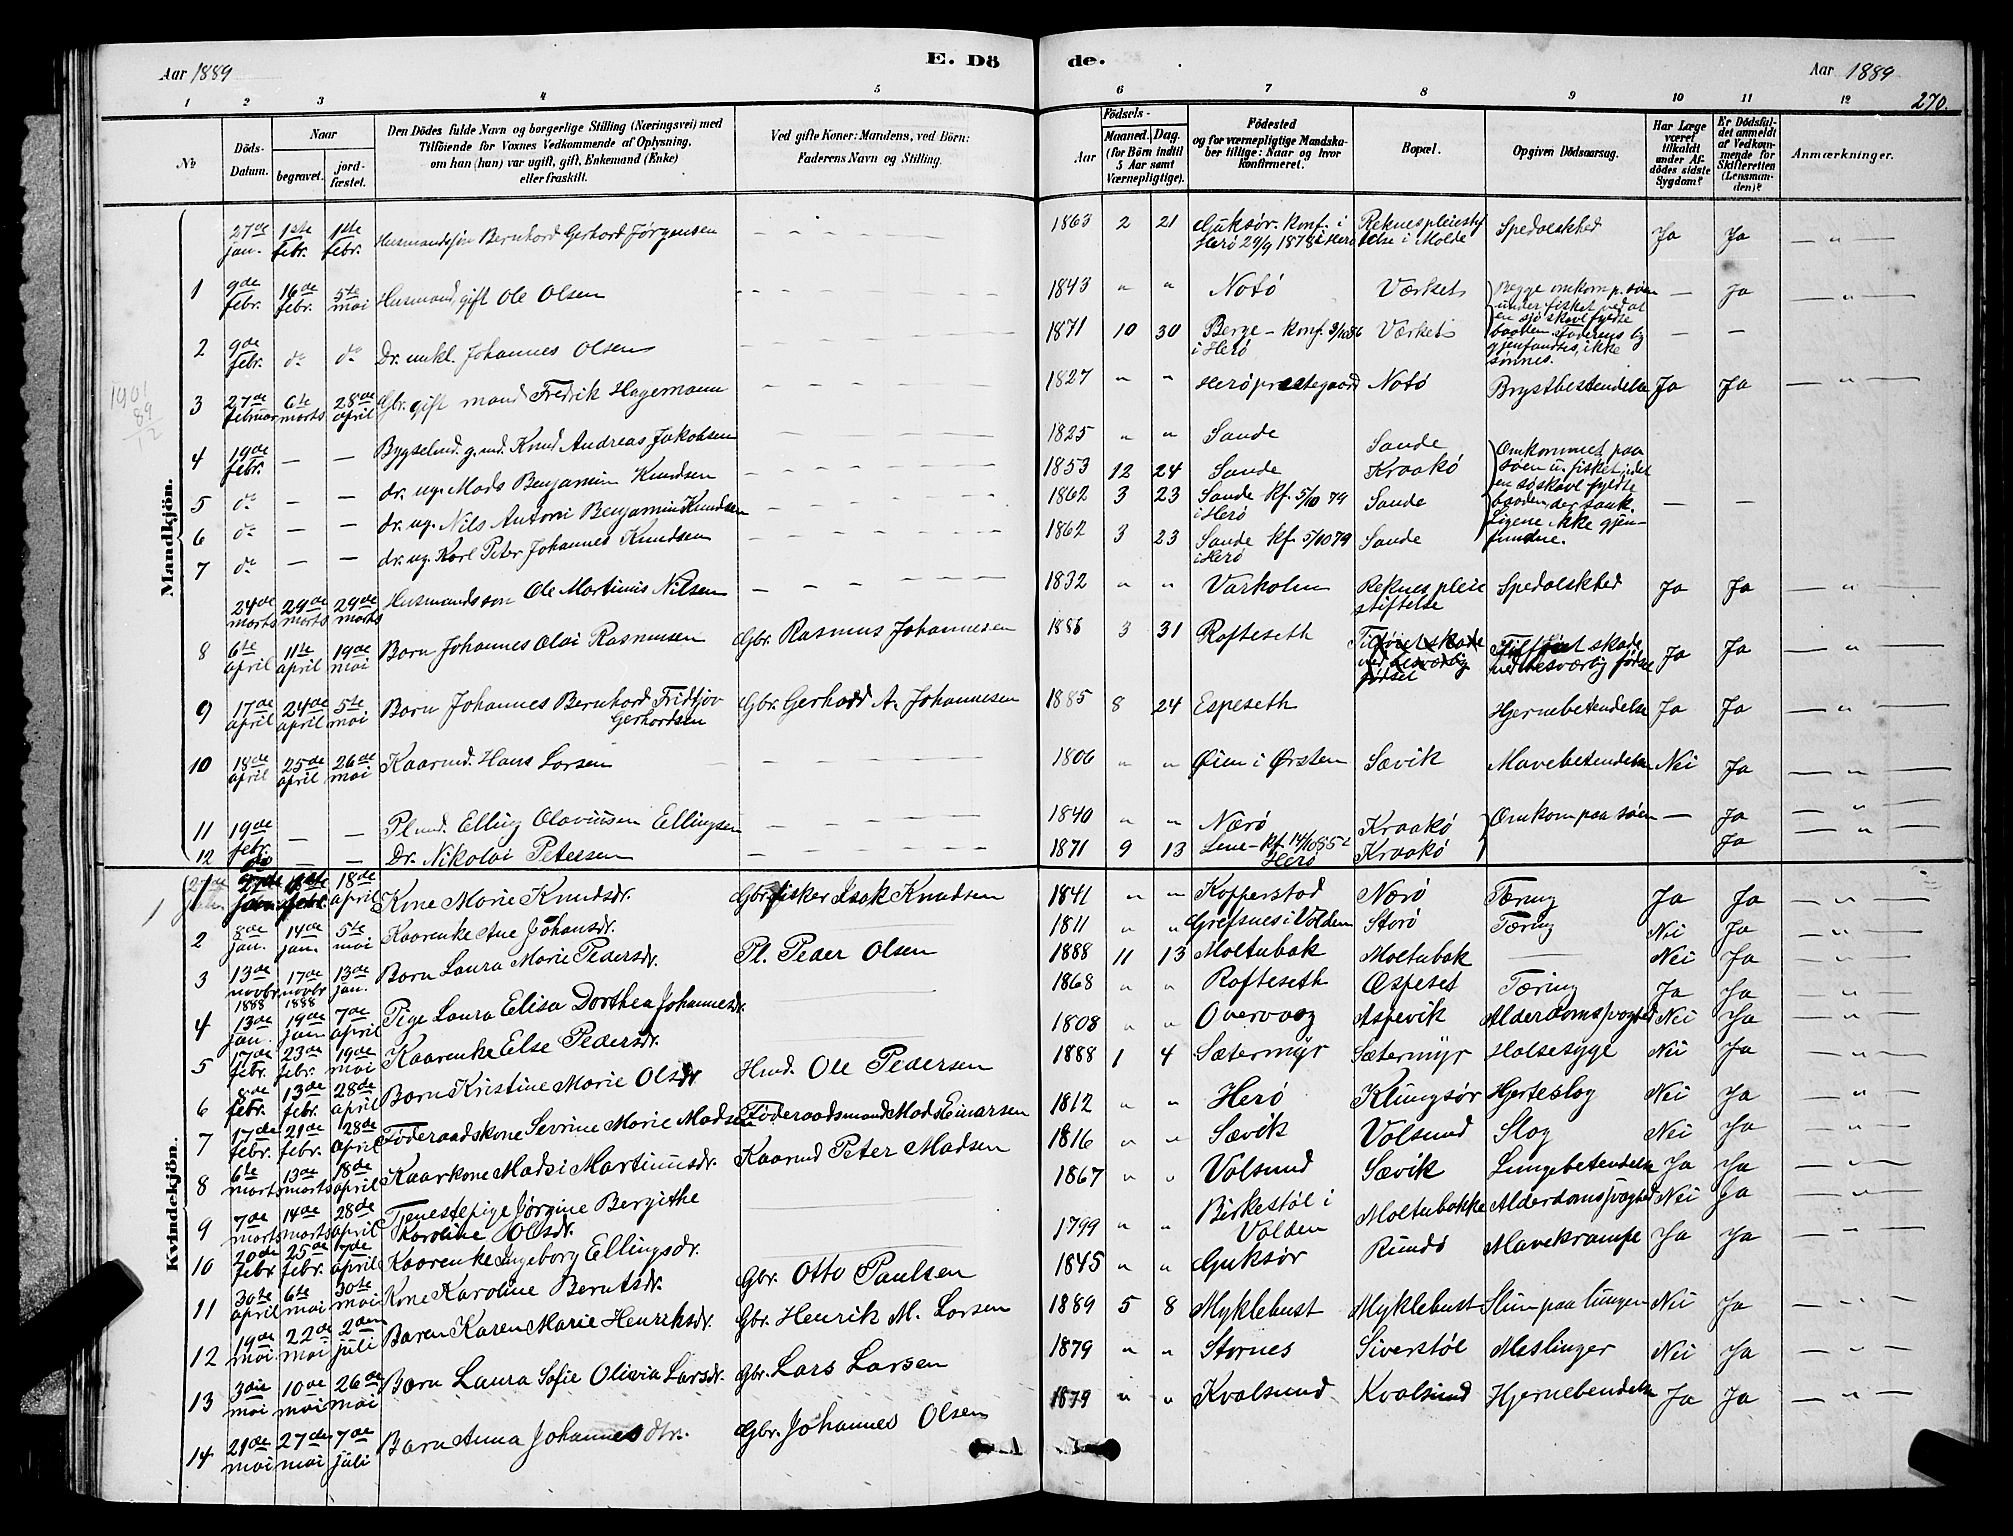 Aar 1889
E. Dö
de.
Aar 1889
270.
1 2 3 4 5 6 7 8 9 10 11 12
No
Döds-Datum.
Naar
begravet.
jord-fæstet.
Den Dödes fulde Navn og borgerlige Stilling (Næringsvei) med
Tilföiende for Voxnes Vedkommende af Oplysning,
om han (hun) var ugift, gift, Enkemand (Enke)
eller fraskilt.
Ved gifte Koner: Mandens, ved Börn:
Faderens Navn og Stilling.
Födsels-
Aar
Maaned. Dag.
(for Börn indtil
5 Aar samt
Værnepligtige).
Födested
og for værnepligtige Mandska-
ber tillige: Naar og hvor
konfirmeret.
Bopæl.
Opgiven Dödsaarsag.
Har Læge
været
tilkaldt
under Af-
dödes sidste
Sygdom?
Er Dödsfal-
det anmeldt
af Vedkom-
mende for
Skifteretten
(Lensman-
den)?
Anmærkninger.
Mandkjön.
27de jan. 1ste febr. 1ste febr. Husmandssön Bernhard Gerhard Jørgensen — 1863 2 21 Guksør. Konf. i Herø 29/9 1878 Reknes pleiestiftelse i Molde Spedalskhed Ja Ja — " —
1 9de febr. 16de febr. 5te mai Husmand gift Ole Olsen — 1843 " " Notø Værket Begge omkom p. søen under fisket ved at en sjøskavl fyldte baaden. Faderens lig gjenfandtes, ikke sønnes. — Ja — " —
2 9de febr. do do Dr. unkl. Johannes Olsen — 1871 10 30 Berge – Konf. 3/10 86 i Herø Værket — —
3 27de februar 6te marts 28de april Gbr. gift mand Fredrik Hagemann — 1827 " " Herø prestegaard Notø Brystbetendelse Ja Ja — " —
1901
89
12
4 19de febr. — — Bygselmd. g. md. Knud Andreas Jakobsen — 1825 " " Sande Sande Omkommet paa søen u. fisket idet en søskavl fyldte baaden, der sank. Ligene ikke gjenfundne.
5 do — — dr. ug. Mads Benjamin Knudsen — 1853 12 24 Sande Kraakø
6 do — — dr. ug. Nils Antoni Benjamin Knudsen — 1862 3 23 Sande kf. 5/10 79 i Herø Sande — —
7 do — — dr. ug. Karl Peter Johannes Knudsen — 1862 3 23 Sande kf. 5/10 79 i Herø Sande
24de marts 29de marts 29de marts Husmandssøn Ole Martinus Nilsen — 1832 " " Varholm Reknes pleiestiftelse Spedalskhed Ja Ja — " —
8 6te april 11te april 19de mai Barn Johannes Olai Rasmussen Gbr. Rasmus Johannesen 1886 3 31 Rafteseth Tilføiet skade ved besværlig fødsel Tilføiet skade ved besværlig fødsel Ja Ja — " —
9 17de april 24de april 5te mai Barn Johannes Bernhard Fridtjov Gerhardsen Gbr. Gerhard A. Johannesen 1885 8 24 Espeseth Hjernebetendelse Ja Ja — " —
10 18de april 25de april 26de mai Kaarmd. Hans Larsen 1806 " " Øien i Ørsten Sævik Mavebetendelse Nei Ja — " —
11 19de febr. — — Pl. md. Elling Olaviusen Ellingsen — 1840 " " Nærø Kraakø Omkom paa søen — Ja — " —
12 do — — Dr. Nikolai Petersen — 1871 9 13 Leine – kf. 14/10 85 i Herø Kraakø Ja — " —
Kvindekjön.
1 18de april Kone Marie Knudsdr. Gbr. fisker Isak Knudsen 1841 " " Kopperstad Nærø Tæring Ja Ja — " —
2 8de jan. 14de jan. 5te mai Kaarenke Ane Johansdr. 1811 " " Grefsnes i Volden Storø Tæring Nei Ja — " —
3 13de novbr 1888 17de novbr 1888 13de jan. Barn Laura Marie Pedersdr. Pl. Peder Olsen 1888 11 13 Moltubak Moltubak — Nei Ja — " —
4 13de jan. 19de jan. 7de april Pige Laura Elisa Dorthea Johannesdr. 1868 " " Rafteseth Espeset Tæring Ja Ja — " —
5 17de febr. 23de febr. 19de mai Kaarenke Else Pedersdr. 1808 " " Overvaag Aspevik Alderdomssvaghed Nei Ja — " —
6 8de febr. 13de febr. 28de april Barn Kristine Marie Olsdr. Hmd. Ole Pedersen 1888 1 4 Sætermyr Sætermyr Halsesyge Nei Ja — " —
7 17de febr. 21de febr. 28de april Föderaadskone Sevrine Marie Madsen Föderaadsmand Mads Einarsen 1812 " " Herø Klungsør Hjerteslag Nei Ja — " —
8 6te marts 13de marts 18de april Kaarkone Madsi Martinusdr. Kaarmd Peter Madsen 1816 " " Sævik Volsund Slag Nei Ja — " —
9 7de marts 14de marts 28de april Tjenestepige Jørgine Bergithe Karoline Olsdr. 1867 " " Volsund Sævik Lungebetendelse Ja Ja — " —
10 20de febr. 25de febr. 7de april Kaarenke Ingeborg Ellingsdr. 1799 " " Birkestøl i Volden Moltubakke Alderdomssvaghed Nei Ja — " —
11 30te april 6te mai 30te mai Kone Karoline Berntsdr. Gbr. Otto Paulsen 1845 " " Guksør Rundø Mavekrampe Ja Ja — " —
12 19de mai 22de mai 2den juli Baren Karen Marie Henriksdr. Gbr. Henrik M. Larsen 1889 5 8 Myklebust Myklebust Slim paa lungen Nei Ja — " —
13 3die mai 10de mai 26de mai Barn Laura Sofie Olivia Larsdr. Gbr. Lars Larsen 1879 " " Stornes Siverstøl Meslinger Nei Ja — " —
14 21de mai 27de mai 7de juli Barn Anna Johannesdtr. Gbr. Johannes Olsen 1879 " " Kvalsund Kvalsund Hjernebendelse Ja Ja — " —